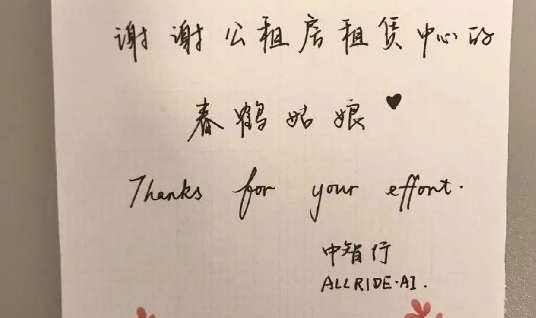 谢谢公租房租赁中心的
春鹤姑娘♥
Thanks for your effort.
中智行
ALLRIDE·AI.